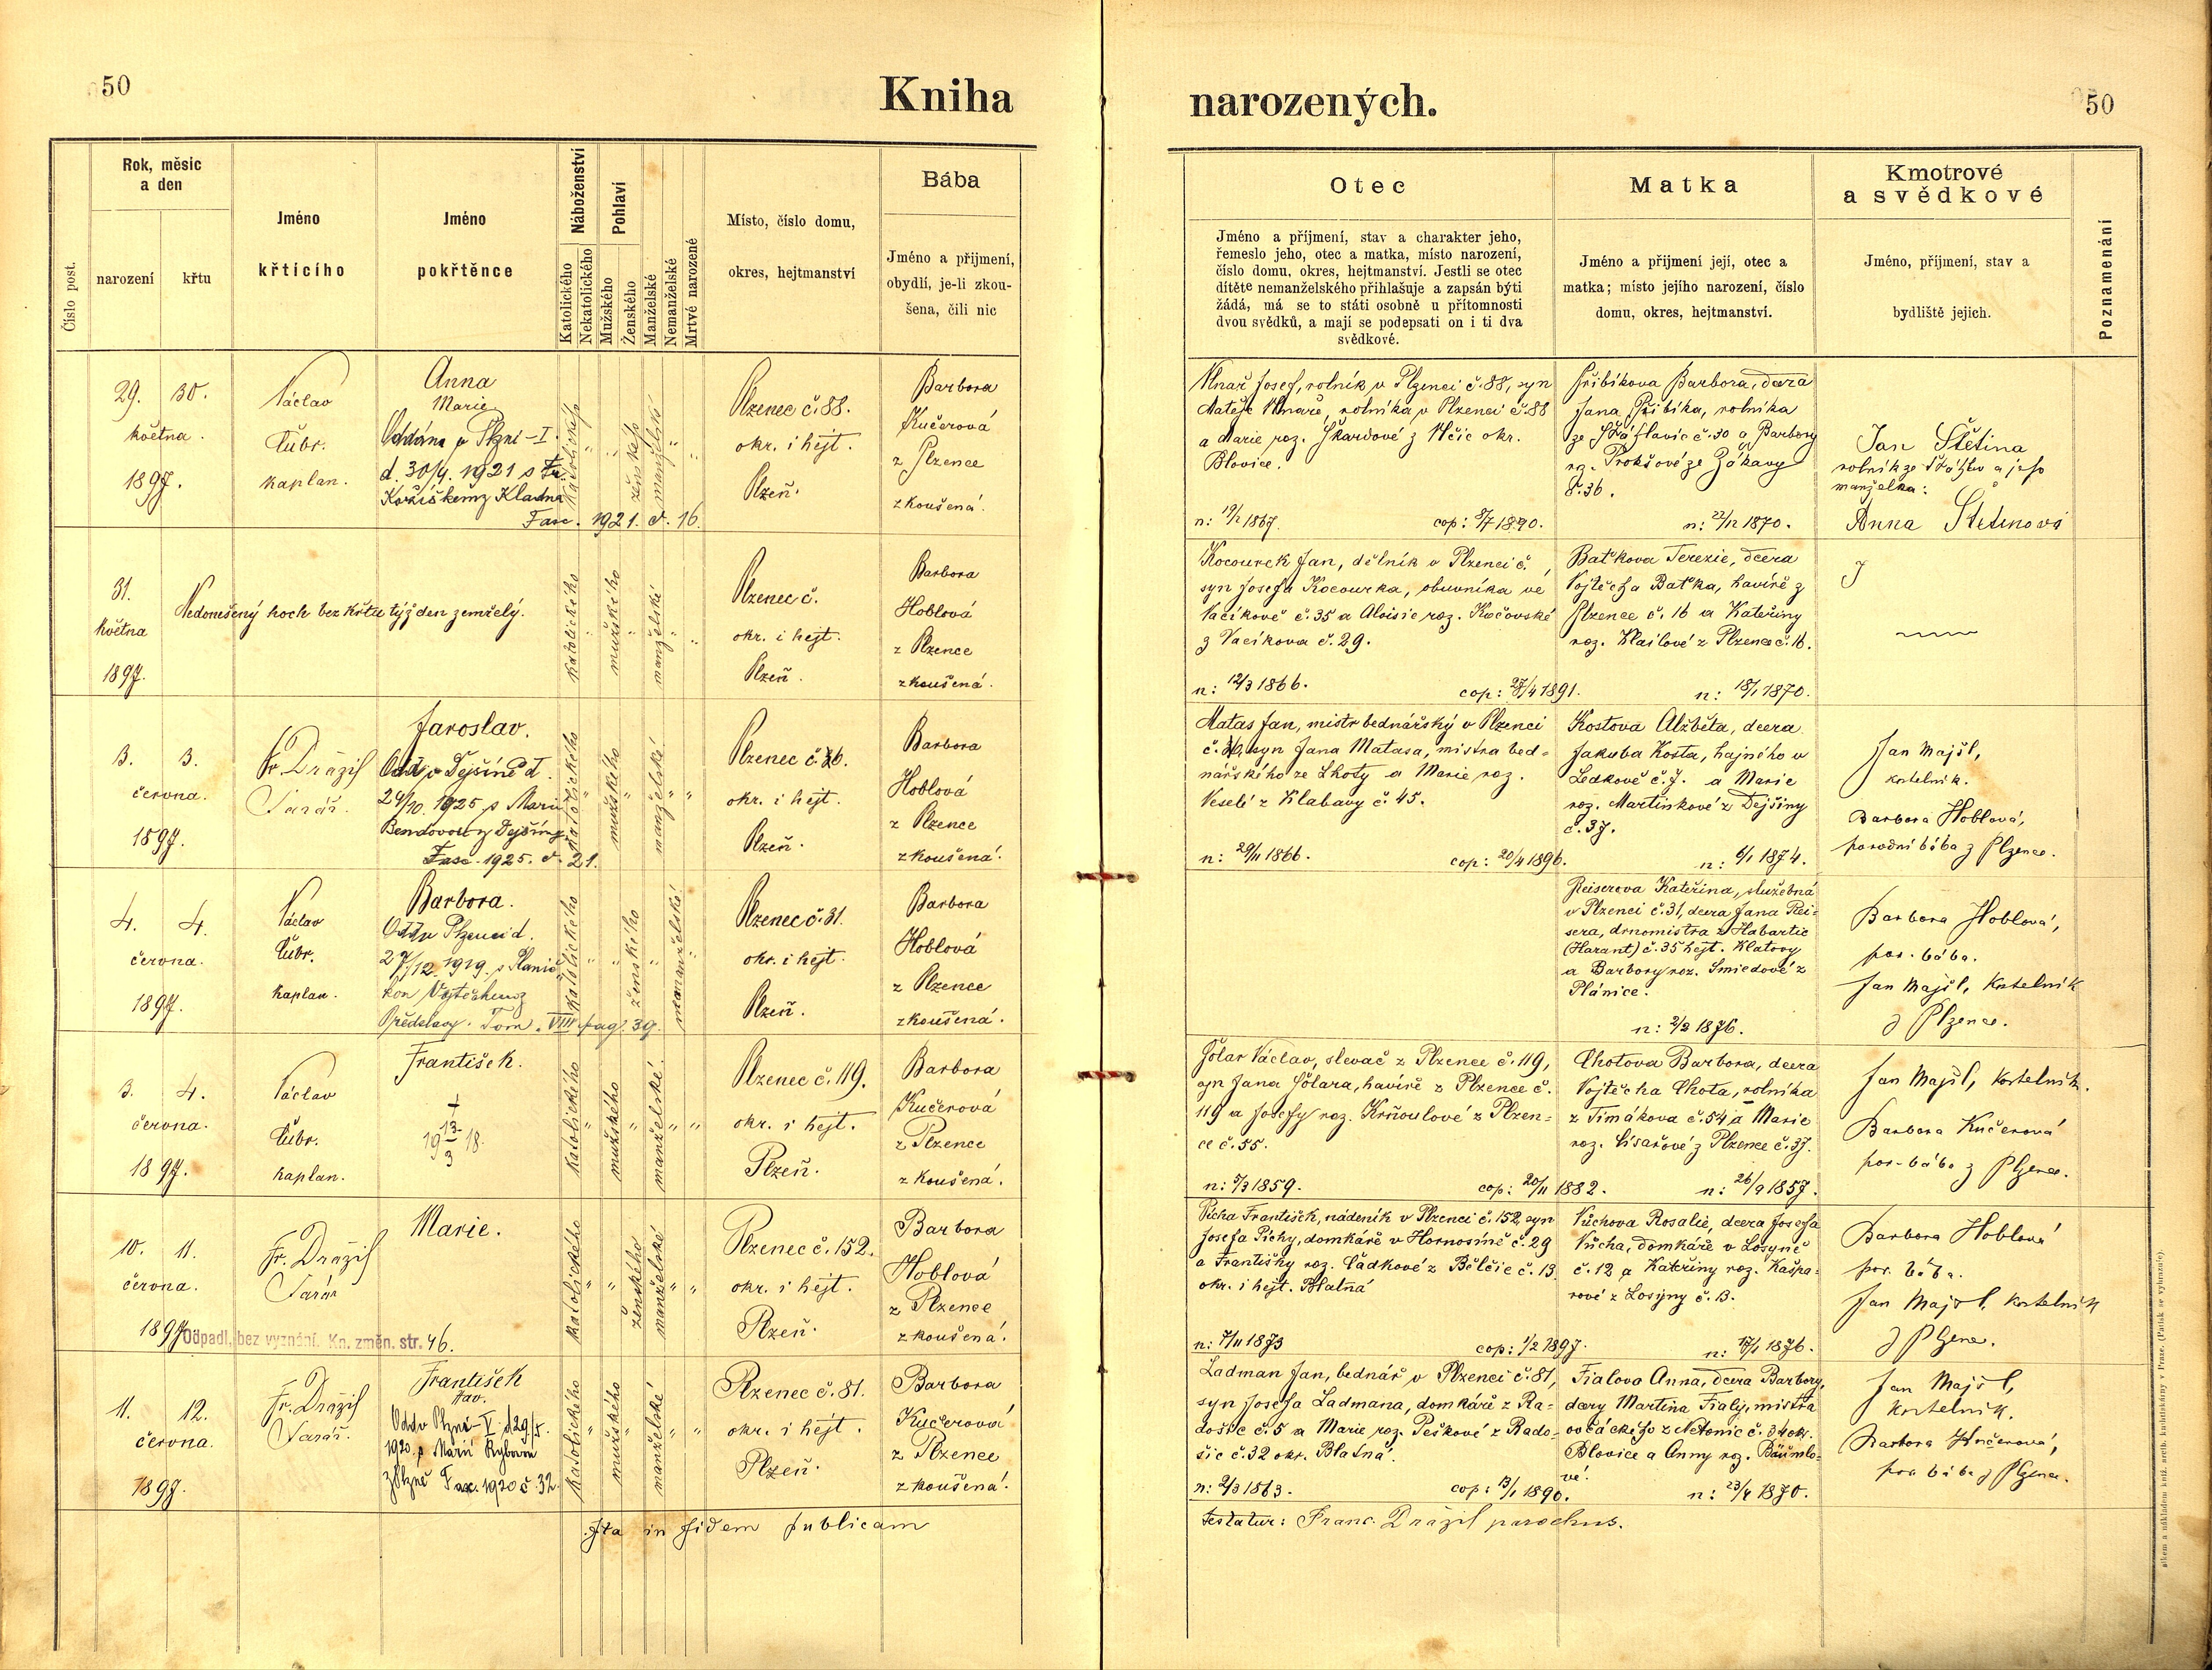 50
Kniha
narozených.
50
Číslo post.
Rok, měsíc
a den
narození
křtu
Jméno
křtícího
Jméno
pokřtěnce
Náboženství
Katolického
Nekatolického
Pohlaví
Mužského
Ženského
Manželské
Nemanželské
Mrtvé narozené
Místo, číslo domu,
okres, hejtmanství
Bába
Jméno a přijmení,
obydlí, je-li zkou-
šena, čili nic
Otec
Jméno a příjmení, stav a charakter jeho,
řemeslo jeho, otec a matka, místo narození,
číslo domu, okres, hejtmanství. Jestli se otec
dítěte nemanželského přihlašuje a zapsán býti
žádá, má se to státi osobně u přítomnosti
dvou svědků, a mají se podepsati on i ti dva
svědkové.
Matka
Jméno a přijmení její, otec a
matka; místo jejího narození, číslo
domu, okres, hejtmanství.
Kmotrové
a svědkové
Jméno, příjmení, stav a
bydliště jejich.
Poznamenání
29. 30.
května.
1897.
Václav
Čubr.
kaplan.
Anna
Marie
Oddána v Plzni-I.
d. 30/4. 1921 s Fr.
Kožíškem z Kladna
Fasc. 1921. č. 16.
katolického
ženského
manželské
Plzenec č. 88.
okr. i hejt.
Plzeň.
Barbora
Kučerová
z Plzence
zkoušená.
Josef, rolník v Plzenci č. 88, syn
Matěje rolníka v Plzenci č. 88
a Marie roz. Škardové z Vlčic okr.
Blovice.
n: 19/2 1867. cop: 8/7 1890.
Přibíkova Barbora, dcera
Jana Přibíka, rolníka
ze Šťáhlavic č. 30 a Barbory
roz. Prokšové ze Žákavy
č. 36.
n: 22/12 1870.
Jan Štětina
rolník ze Šťáhlav a jeho
manželka:
Anna Štětinová
31.
května
1897.
Nedonešený hoch bez křtu týž den zemřelý.
katolického
mužského
manželské
Plzenec č.
okr. i hejt.
Plzeň.
Barbora
Hoblová
z Plzence
zkoušená.
Kocourek Jan, dělník v Plzenci č.
syn Josefa Kocourka, obuvníka ve
Vacíkově č. 35 a Aloisie roz. Kočovské
z Vacíkova č. 29.
n: 12/3 1866. cop: 27/4 1891.
Baťkova Terezie, dcera
Vojtěcha Baťka, havíře z
Plzence č. 16 a Kateřiny
roz. Klailové z Plzence č. 16.
n: 18/1 1870.
3. 3.
června.
1897.
Fr. Drážil
Farář.
Jaroslav.
Odd. v Dejšině d.
24/10. 1925 s Marií
Bendovou z Dejšiny
Fasc. 1925. č. 21.
katolického
mužského
manželské
Plzenec č. 36.
okr. i hejt.
Plzeň.
Barbora
Hoblová
z Plzence
zkoušená.
Matas Jan, mistr bednářský v Plzenci
č. 36, syn Jana Matasa, mistra bed-
nářského ze Lhoty a Marie roz.
Veselé z Klabavy č. 45.
n: 29/11 1866. cop: 20/4 1896.
Kostova Alžběta, dcera
Jakuba Kosta, hajného v
Ledkově č. 7. a Marie
roz. Martínkové z Dejšiny
č. 37.
n: 6/1 1874.
Jan Majšl,
kostelník.
Barbora Hoblová,
porodní bába z Plzence.
4. 4.
června.
1897.
Václav
Čubr.
kaplan.
Barbora.
Odd. v Plzenci d.
27/12. 1919. s
Vojtěchem z
Předslavy. Tom. VIII pag. 39.
katolického
ženského
nemanželské
Plzenec č. 31.
okr. i hejt.
Plzeň.
Barbora
Hoblová
z Plzence
zkoušená.
Reiserova Kateřina, služebná
v Plzenci č. 31, dcera Jana Rei-
sera, drnomistra z Habartic
(Harant) č. 35 hejt. Klatovy
a Barbory roz. Šmiedové z
Plánice.
n: 2/2 1876.
Barbora Hoblová,
por. bába.
Jan Majšl, kostelník
z Plzence.
3. 4.
června.
1897.
Václav
Čubr.
kaplan.
František.
†
19 13/3 18.
katolického
mužského
manželské
Plzenec č. 119.
okr. i hejt.
Plzeň.
Barbora
Kučerová
z Plzence
zkoušená.
Šolar Václav, slevač z Plzence č. 119,
syn Jana Šolara, havíře z Plzence č.
119 a Josefy roz. Krňoulové z Plzen-
ce č. 55.
n: 5/3 1859. cop: 20/11 1882.
Chotova Barbora, dcera
Vojtěcha Chota, rolníka
z Timákova č. 54 a Marie
roz. Císařové z Plzence č. 37.
n: 26/9 1857.
Jan Majšl, kostelník.
Barbora Kučerová
por. bába z Plzence.
10. 11.
června.
1897
Odpadl, bez vyznání. Kn. změn. str. 46.
Fr. Drážil
Farář
Marie.
katolického
ženského
manželské
Plzenec č. 152.
okr. i hejt.
Plzeň.
Barbora
Hoblová
z Plzence
zkoušená.
Pícha František, nádeník v Plzenci č. 152, syn
Josefa Píchy, domkáře v Hornosíně č. 29
a Františky roz. Čádkové z Bělčic č. 13
okr. i hejt. Blatná
n: 7/11 1873 cop: 1/2 1897.
Vůchova Rosalie, dcera Josefa
Vůcha, domkáře v Losyně
č. 12 a Kateřiny roz. Kašpa-
rové z Losyny č. 13.
n: 17/1 1876.
Barbora Hoblová
por. bába.
Jan Majšl, kostelník
z Plzence.
11. 12.
června.
1897.
Fr. Drážil
Farář.
František
Odd. v Plzni-V d. 29/5.
1920 s Marií Rybovou
z Plzně Fasc. 1920 č. 32.
katolického
mužského
manželské
Plzenec č. 81.
okr. i hejt.
Plzeň.
Barbora
Kučerová
z Plzence
zkoušená.
Ladman Jan, bednář v Plzenci č. 81,
syn Josefa Ladmana, domkáře z Ra-
došic č. 5 a Marie roz. Peškové z Rado-
šic č. 32 okr. Blatná.
n: 2/3 1863. cop: 13/1 1890.
Fialova Anna, dcera Barbory,
dcery Martina Fialy, mistra
ovčáckého z Netonic č. 34 okr.
Blovice a Anny roz. Bäumlo-
vé.
n: 23/4 1870.
Jan Majšl,
kostelník.
Barbora Kučerová,
por. bába z Plzence.
Ita in fidem publicam
testatur: Franc. Drážil parochus.